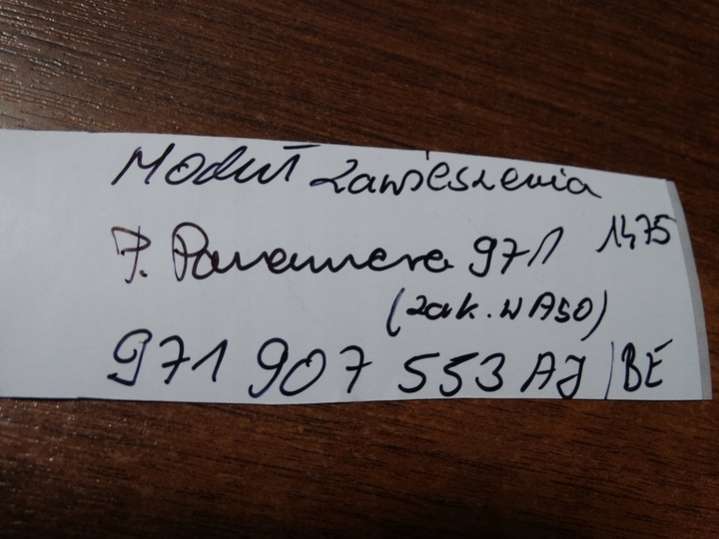 Moduł zawieszenia
P. Panamera 971 1475
(zak. w ASO)
971 907 553 AJ / BE